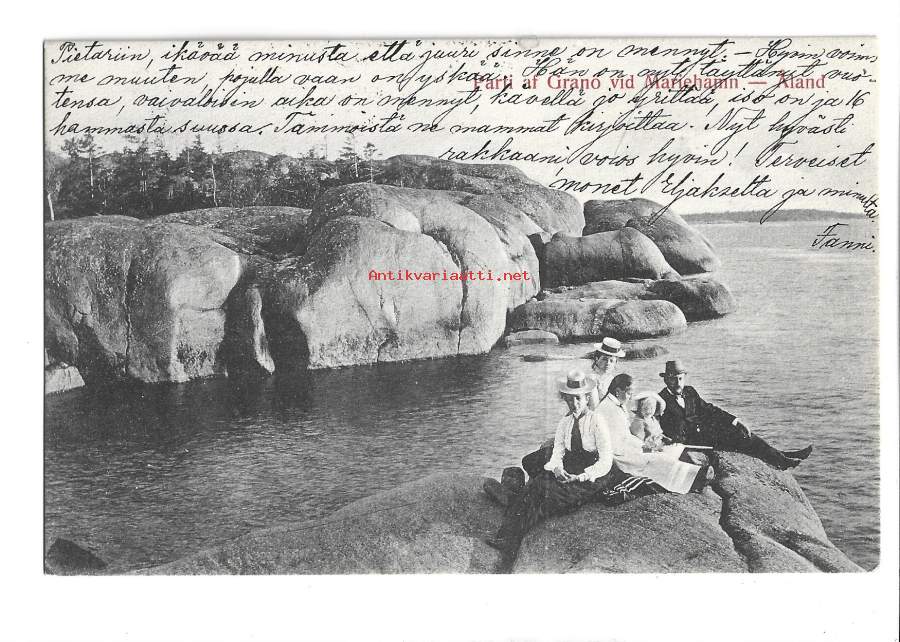 Pietariin, ikävää minusta että juuri sinne on mennyt. — Hyvin voim-
me muuten, pojulla vaan on yskää. Hän on nyt täyttänyt vuo-
Parti af Granö vid Mariehamn — Åland
tensa, vaivaloisen aika on mennyt, kävellä jo yrittää, iso on ja 16
hammasta suussa. Tämmöistä ne mammat kirjoittaa. Nyt hyvästi
rakkaani, voios hyvin! Terveiset
monet Eljakselta ja minulta
Fanni.
Antikvariaatti.net